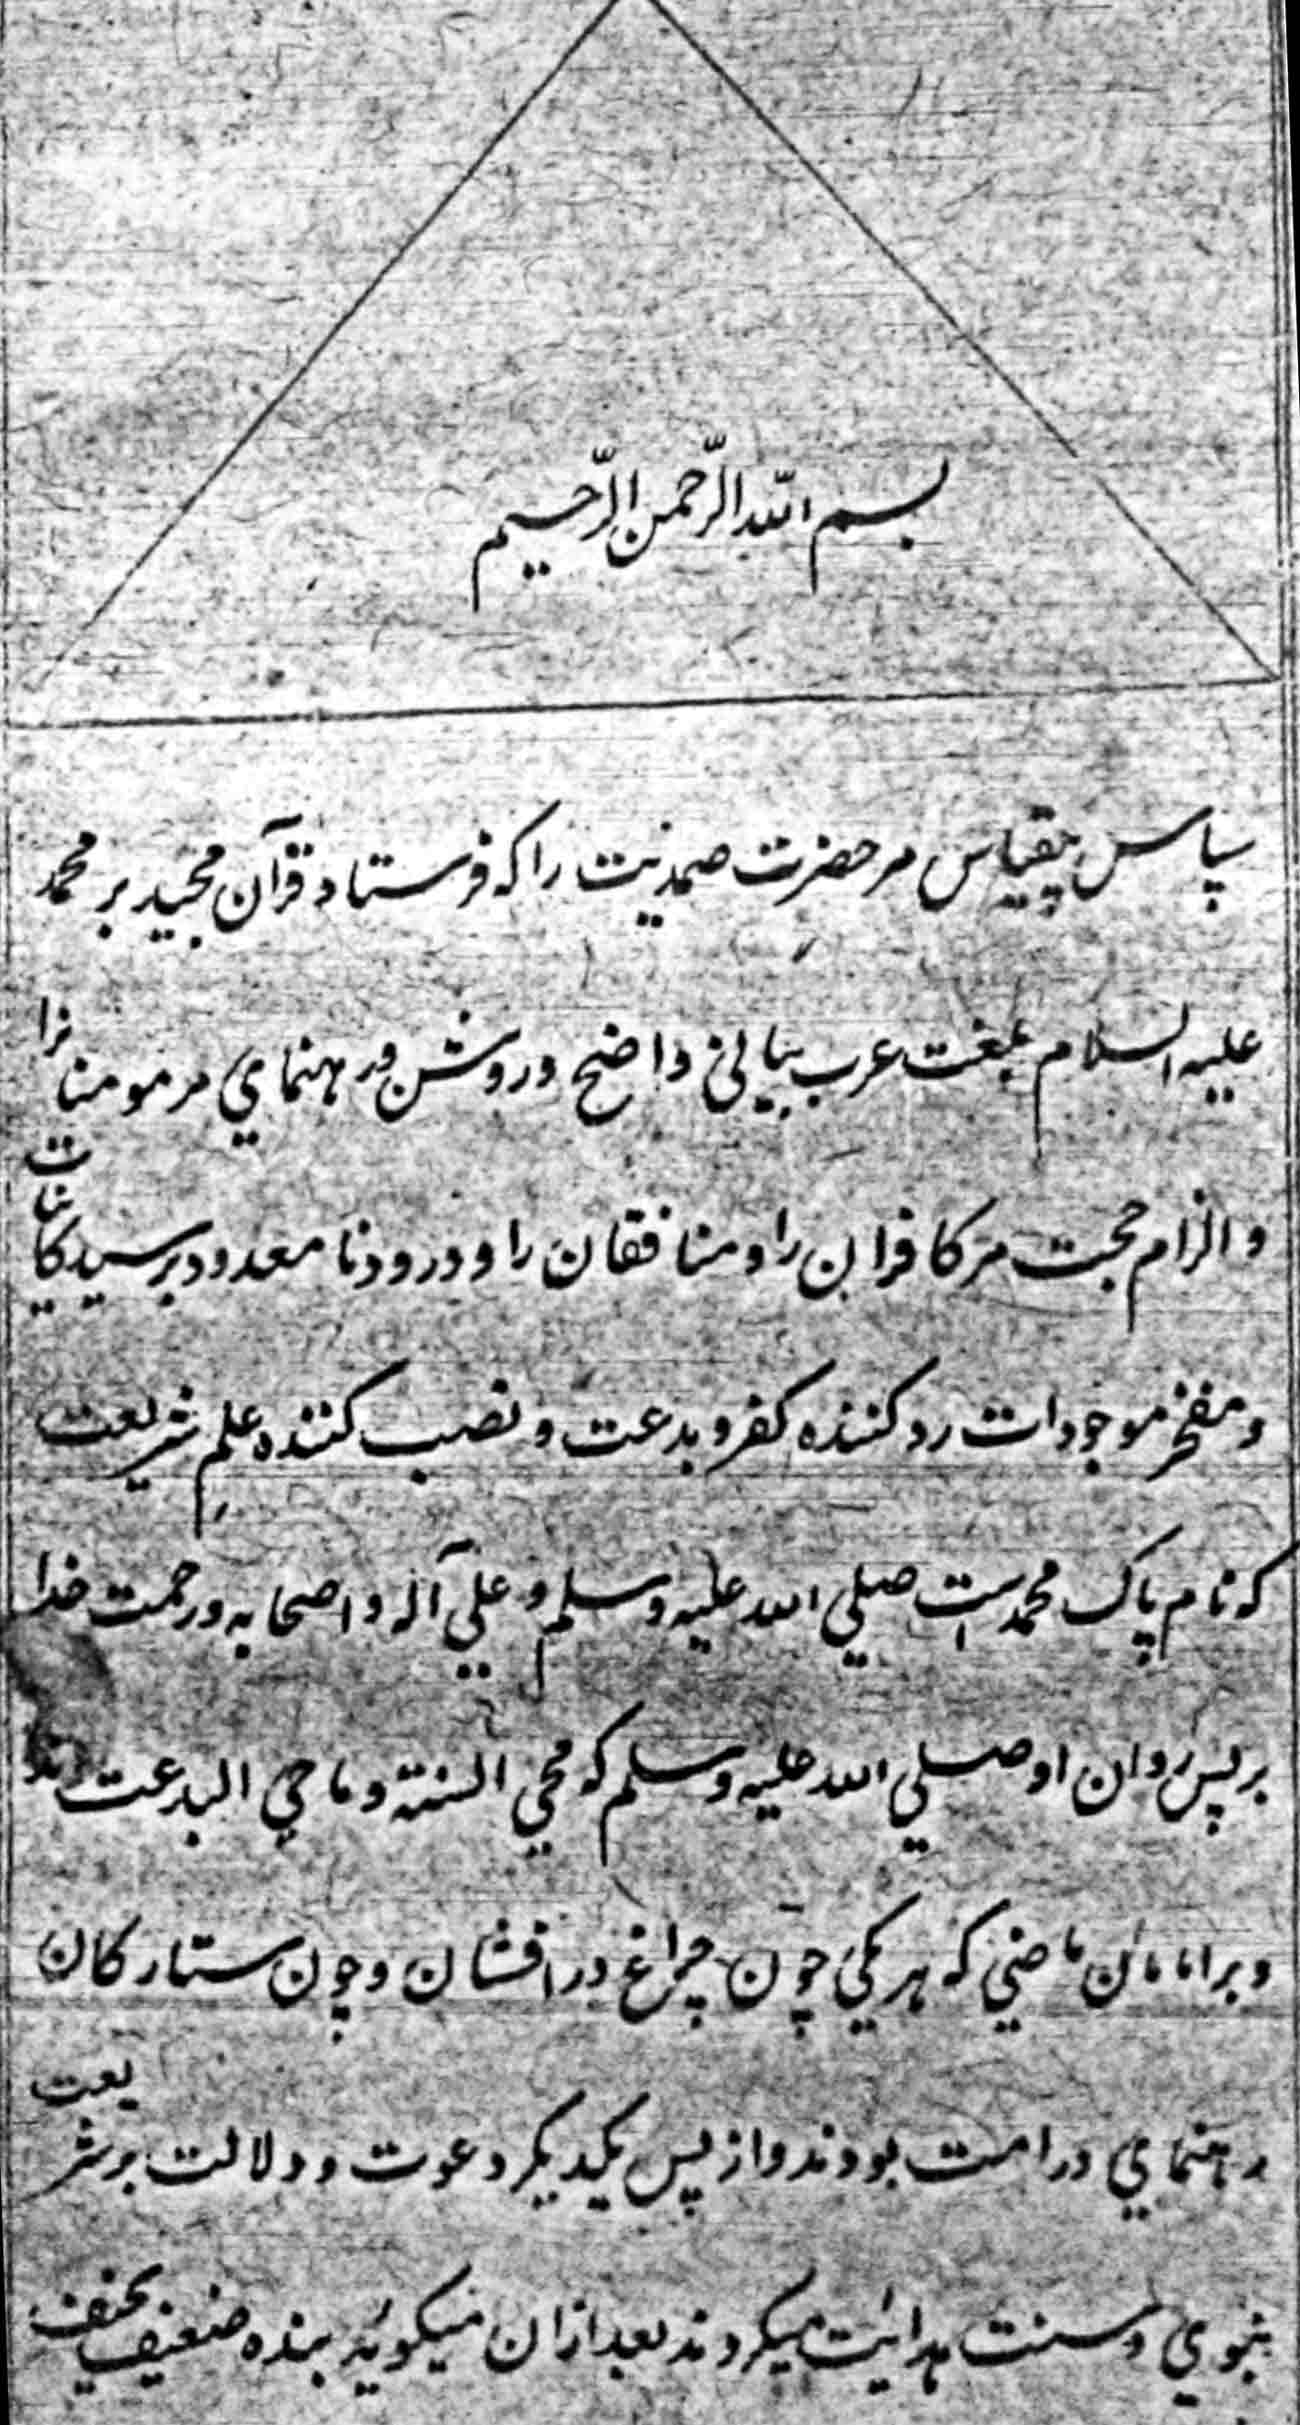 بسم الله الرّحمن الرّحیم
سپاس بیقیاس مر حضرتِ صمدیت را که فرستاد قرآن مجید بر محمد
علیه السلام بلغت عرب بیانی واضح و روشن و رهنمای مر مومنانرا
و الزام حجت مر کافران را و منافقان را و درود نا معدود بر سید کاینات
و مفخر موجودات رد کننده کفر و بدعت و نصب کننده علمِ شریعت
که نام پاک محمد است صلی الله علیه وسلم و علی آله و اصحابه و رحمت خدا
بر پس روان او صلی الله علیه وسلم که محی السنته و ماحی البدعت اند
و بر امامان ماضی که هر یکی چون چراغ در افشان و چون ستارکان
رهنمای در امت بودند و از پس یکدیکر دعوت و دلالت بر شریعت
نبوی و سنت هدائت میکردند بعد ازان میکوئد بنده ضعیف نحیف